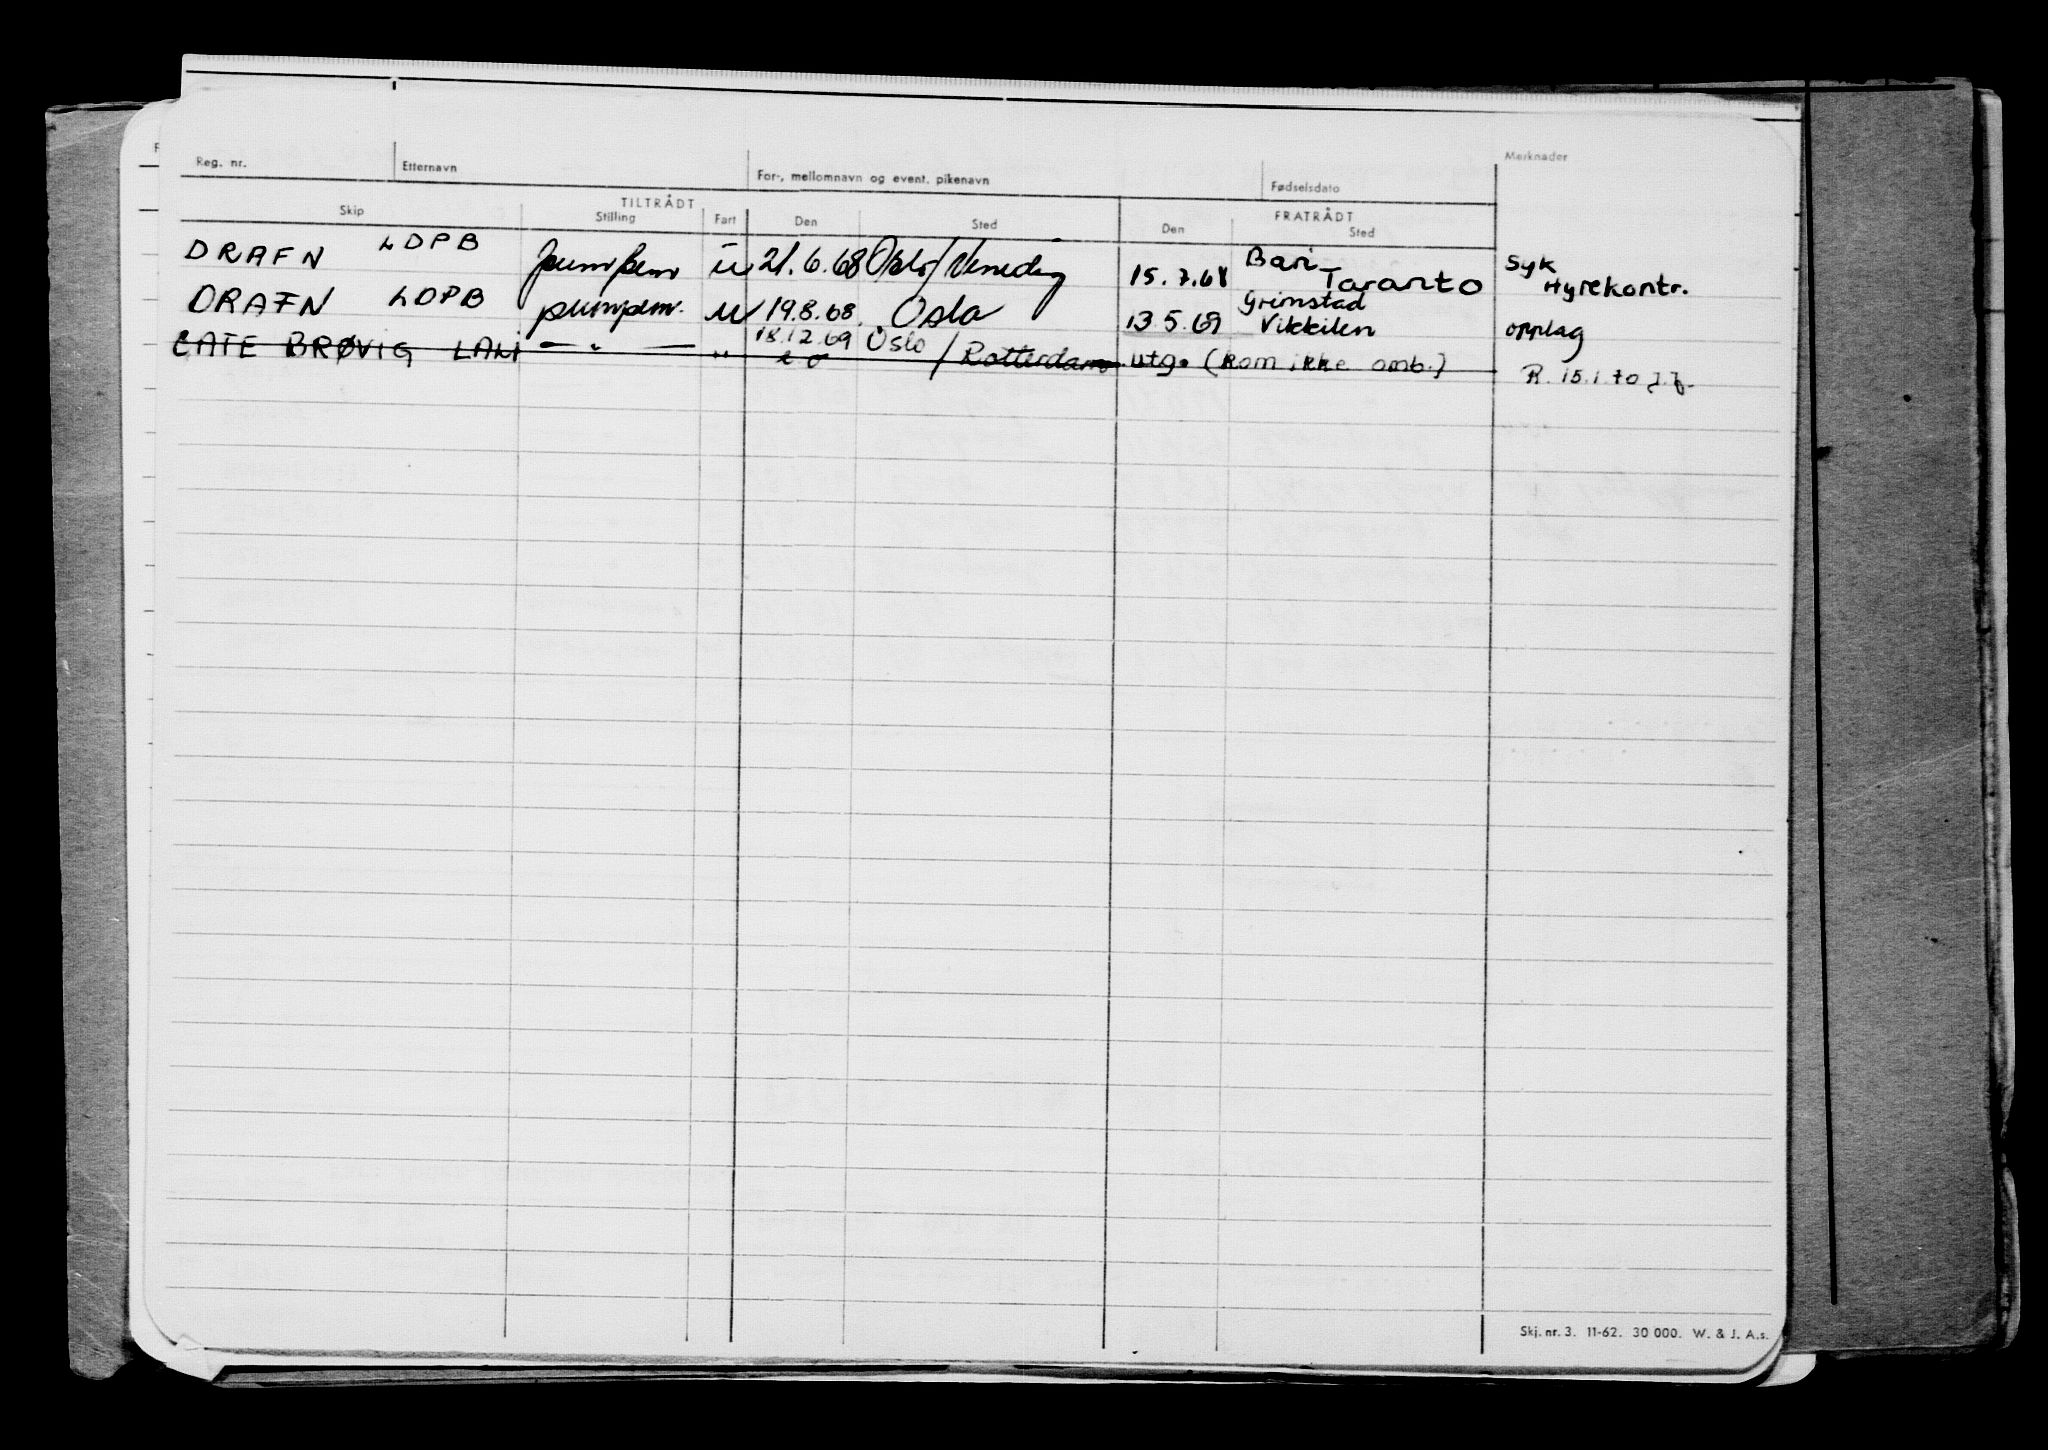 Reg. nr. Etternavn For-, mellomnavn og event. pikenavn Fødselsdato Merknader
TILTRÅDT FRATRÅDT
Skip Stilling Fart Den Sted Den Sted
DRAFN LDPB pumpem u 21.6.68 Oslo/Venedig 15.7.68 Bari Taranto Syk Hyrekontr.
DRAFN LDPB pumpem. u 19.8.68. Oslo 13.5.69 Grimstad Vikkilen opplag
CATE BRØVIG — " — " 18.12.69 Oslo / Rotterdam utg. (kom ikke omb.) R. 15.1.70
Skj. nr. 3. 11-62. 30 000. W. & J. A.s.